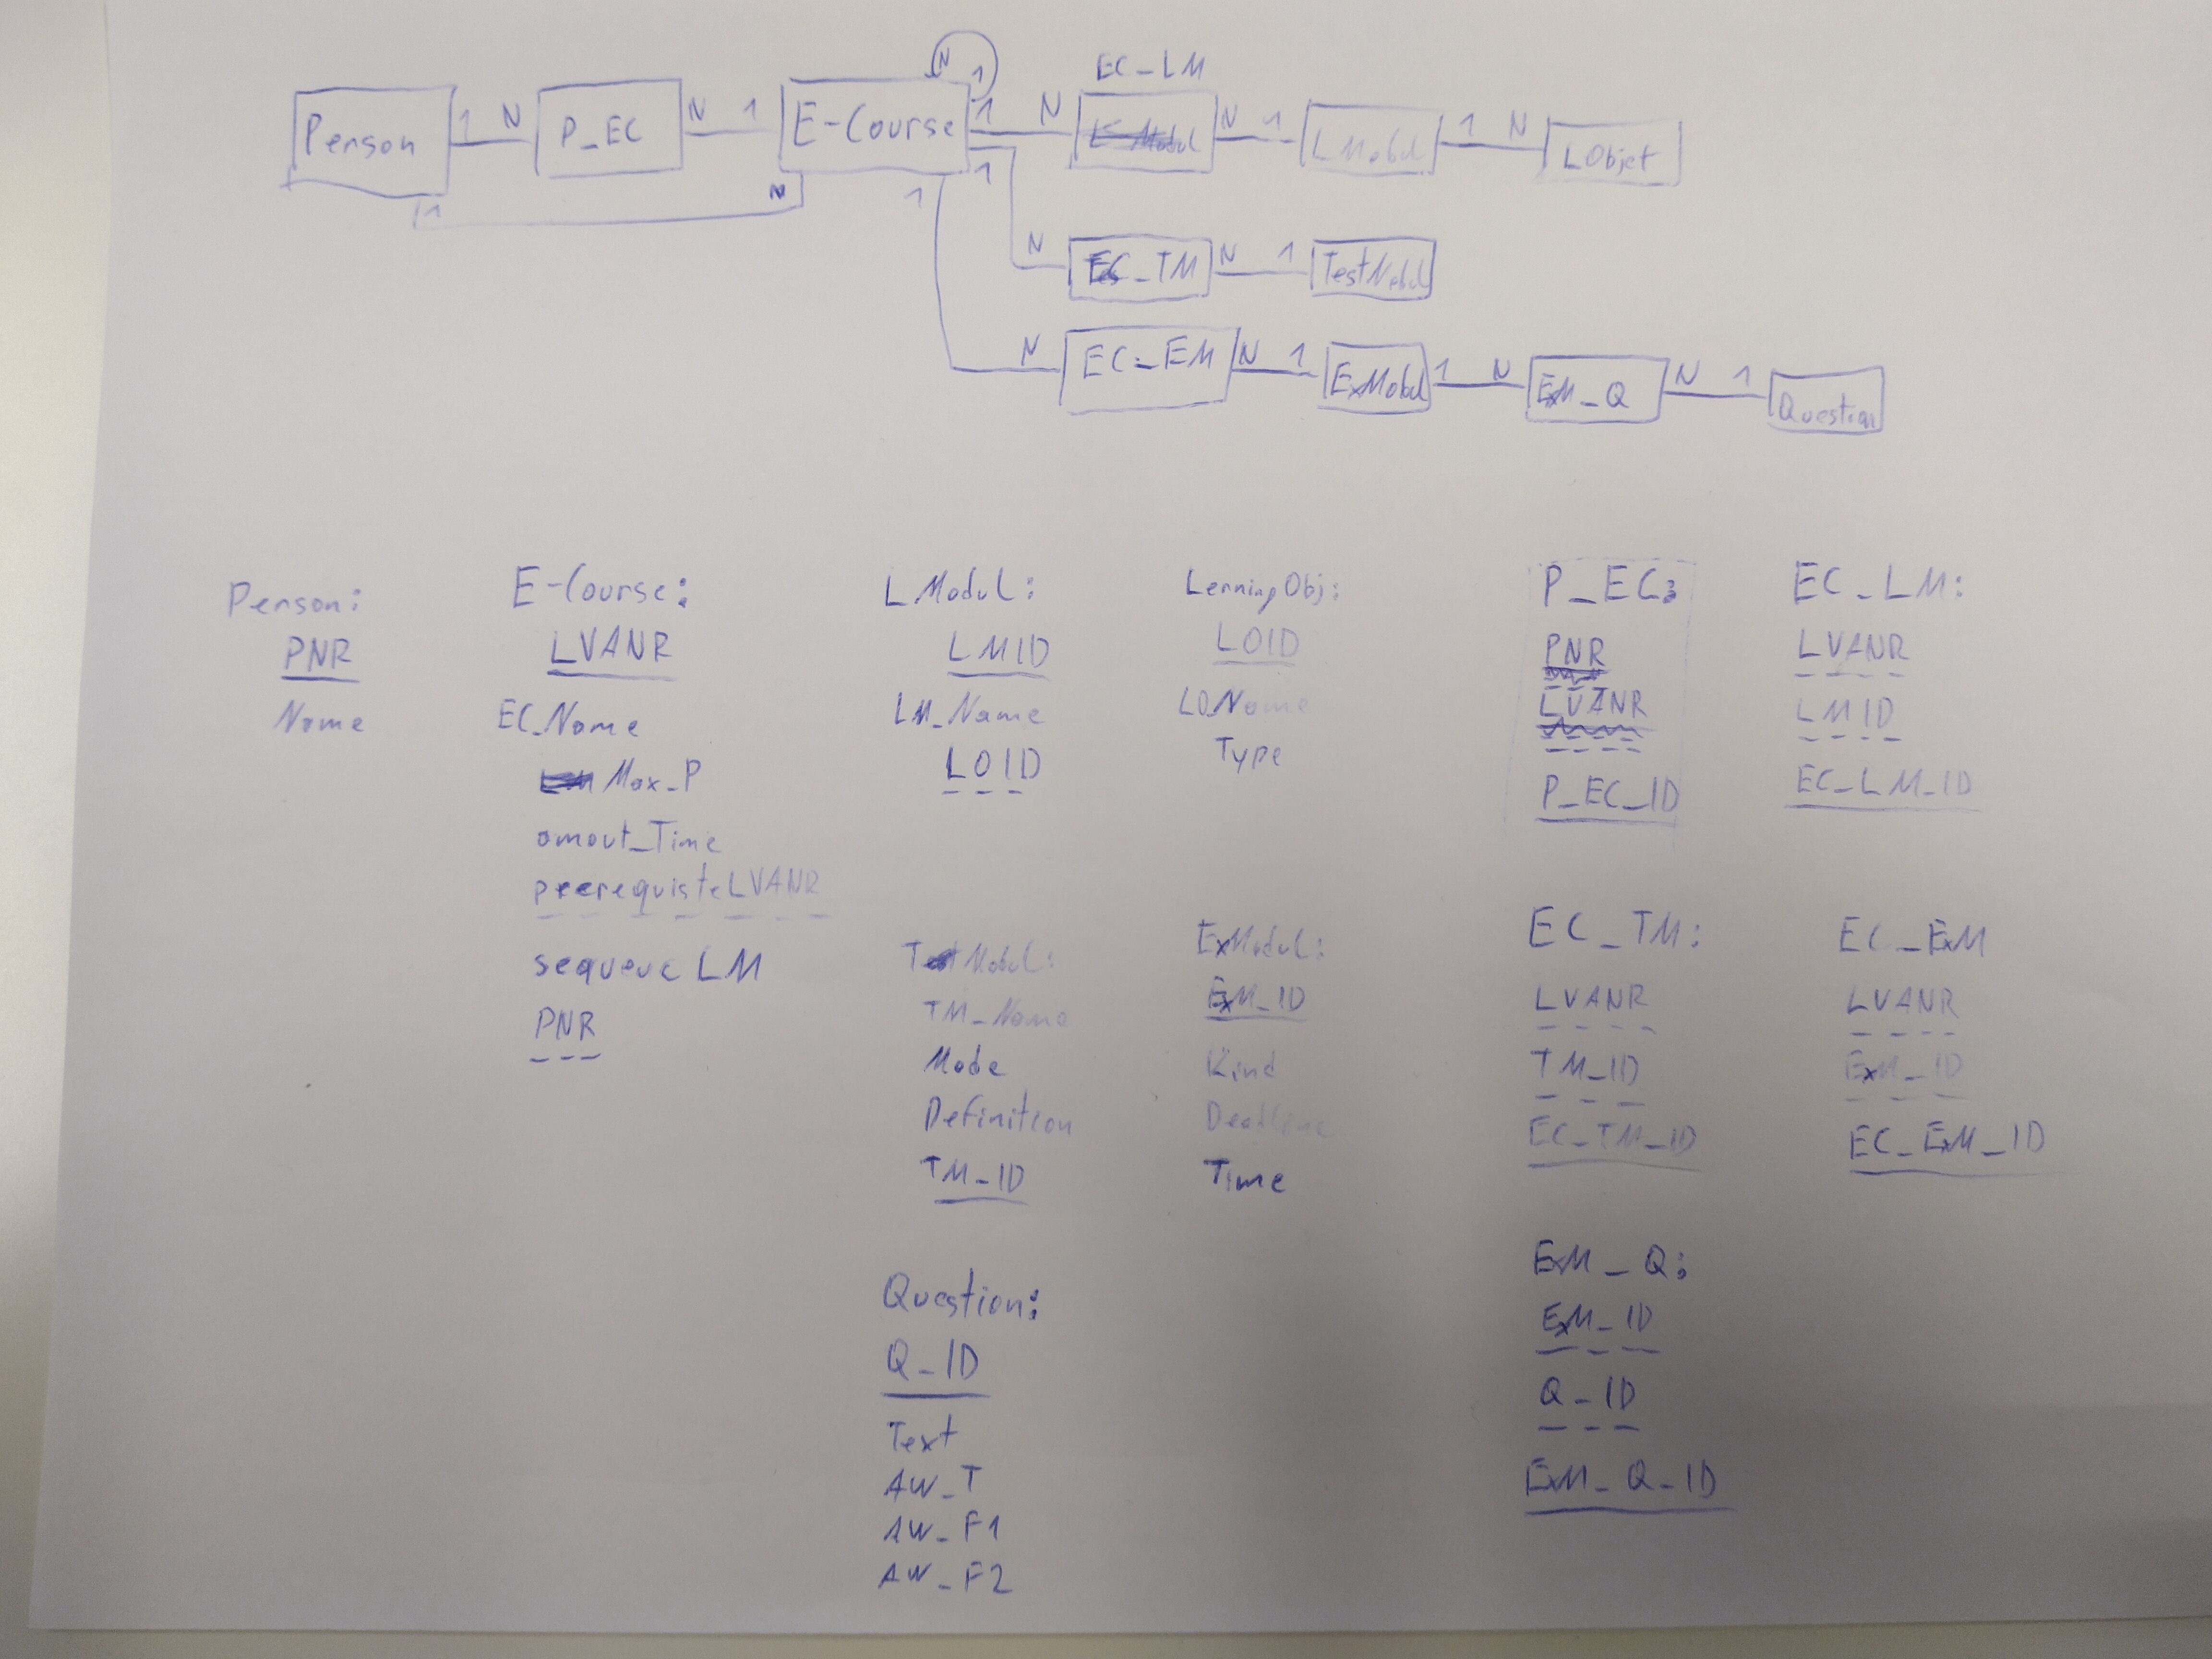 EC_LM
Person 1 N P_EC N 1 E-Course 1 N N 1 LModul 1 N LObjet
N 1
1 N
1 N EC_TM N 1 TestModul
1 N EC_EM N 1 ExModul 1 N ExM_Q N 1 Question
Person:
PNR
Name
E-Course:
LVANR
EC_Name
Max_P
amout_Time
prerequisteLVANR
sequenc LM
PNR
LModul:
LMID
LM_Name
LOID
LerningObj:
LOID
LOName
Type
P_EC:
PNR
LVANR
P_EC_ID
EC_LM:
LVANR
LMID
EC_LM_ID
TModul:
TM_Name
Mode
Definition
TM_ID
ExModul:
ExM_ID
Kind
Deadline
Time
EC_TM:
LVANR
TM_ID
EC_TM_ID
EC_ExM
LVANR
ExM_ID
EC_ExM_ID
Question:
Q_ID
Text
AW_T
AW_F1
AW_F2
ExM_Q:
ExM_ID
Q_ID
ExM_Q_ID